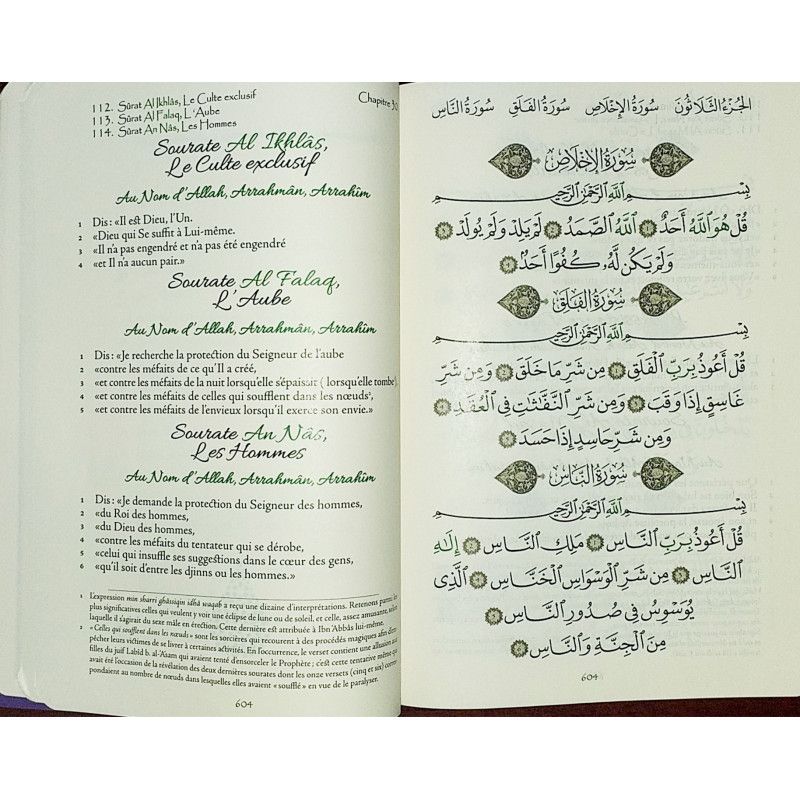 112. Sûrat Al Ikhlâs, Le Culte exclusif
113. Sûrat Al Falaq, L'Aube
114. Sûrat An Nâs, Les Hommes
Chapitre 30
Sourate Al Ikhlâs,
Le Culte exclusif
Au Nom d'Allah, Arrahmân, Arrahîm
1 Dis : «Il est Dieu, l'Un.
2 «Dieu qui Se suffit à Lui-même.
3 «Il n'a pas engendré et n'a pas été engendré
4 «et Il n'a aucun pair.»
Sourate Al Falaq,
L'Aube
Au Nom d'Allah, Arrahmân, Arrahîm
1 Dis : «Je recherche la protection du Seigneur de l'aube
2 «contre les méfaits de ce qu'Il a créé,
3 «et contre les méfaits de la nuit lorsqu'elle s'épaissit ( lorsqu'elle tombe¹)
4 «et contre les méfaits de celles qui soufflent dans les nœuds²,
5 «et contre les méfaits de l'envieux lorsqu'il exerce son envie.»
Sourate An Nâs,
Les Hommes
Au Nom d'Allah, Arrahmân, Arrahîm
1 Dis : «Je demande la protection du Seigneur des hommes,
2 «du Roi des hommes,
3 «du Dieu des hommes,
4 «contre les méfaits du tentateur qui se dérobe,
5 «celui qui insuffle ses suggestions dans le cœur des gens,
6 «qu'il soit d'entre les djinns ou les hommes.»
1 L'expression min sharri ghâssiqin idhâ waqab a reçu une dizaine d'interprétations. Retenons parmi les
plus significatives celles qui veulent y voir une éclipse de lune ou de soleil, et celle, assez amusante, selon
laquelle il s'agirait du sexe mâle en érection. Cette dernière est attribuée à Ibn 'Abbâs lui-même.
2 « Celles qui soufflent dans les nœuds» sont les sorcières qui recourent à des procédés magiques afin d'em-
pêcher leurs victimes de se livrer à certaines activités. En l'occurrence, le verset contient une allusion aux
filles du juif Labîd b. al-'Asam qui auraient tenté d'ensorceler le Prophète ; c'est cette tentative même qui
avait été l'occasion de la révélation des deux dernières sourates dont les onze versets (cinq et six) corres-
pondaient au nombre de nœuds dans lesquelles elles avaient « soufflé » en vue de le paralyser.
604
الجُزْءُ الثَّلَاثُونَ سُورَةُ الإِخْلَاصِ سُورَةُ الفَلَقِ سُورَةُ النَّاسِ
سُورَةُ الإِخْلَاصِ
بِسْمِ ٱللَّهِ ٱلرَّحْمَٰنِ ٱلرَّحِيمِ
قُلْ هُوَ ٱللَّهُ أَحَدٌ ١ ٱللَّهُ ٱلصَّمَدُ ٢ لَمْ يَلِدْ وَلَمْ يُولَدْ ٣
وَلَمْ يَكُن لَّهُۥ كُفُوًا أَحَدٌۢ ٤
سُورَةُ الفَلَقِ
بِسْمِ ٱللَّهِ ٱلرَّحْمَٰنِ ٱلرَّحِيمِ
قُلْ أَعُوذُ بِرَبِّ ٱلْفَلَقِ ١ مِن شَرِّ مَا خَلَقَ ٢ وَمِن شَرِّ
غَاسِقٍ إِذَا وَقَبَ ٣ وَمِن شَرِّ ٱلنَّفَّٰثَٰتِ فِى ٱلْعُقَدِ ٤
وَمِن شَرِّ حَاسِدٍ إِذَا حَسَدَ ٥
سُورَةُ النَّاسِ
بِسْمِ ٱللَّهِ ٱلرَّحْمَٰنِ ٱلرَّحِيمِ
قُلْ أَعُوذُ بِرَبِّ ٱلنَّاسِ ١ مَلِكِ ٱلنَّاسِ ٢ إِلَٰهِ
ٱلنَّاسِ ٣ مِن شَرِّ ٱلْوَسْوَاسِ ٱلْخَنَّاسِ ٤ ٱلَّذِى
يُوَسْوِسُ فِى صُدُورِ ٱلنَّاسِ ٥
مِنَ ٱلْجِنَّةِ وَٱلنَّاسِ ٦
604